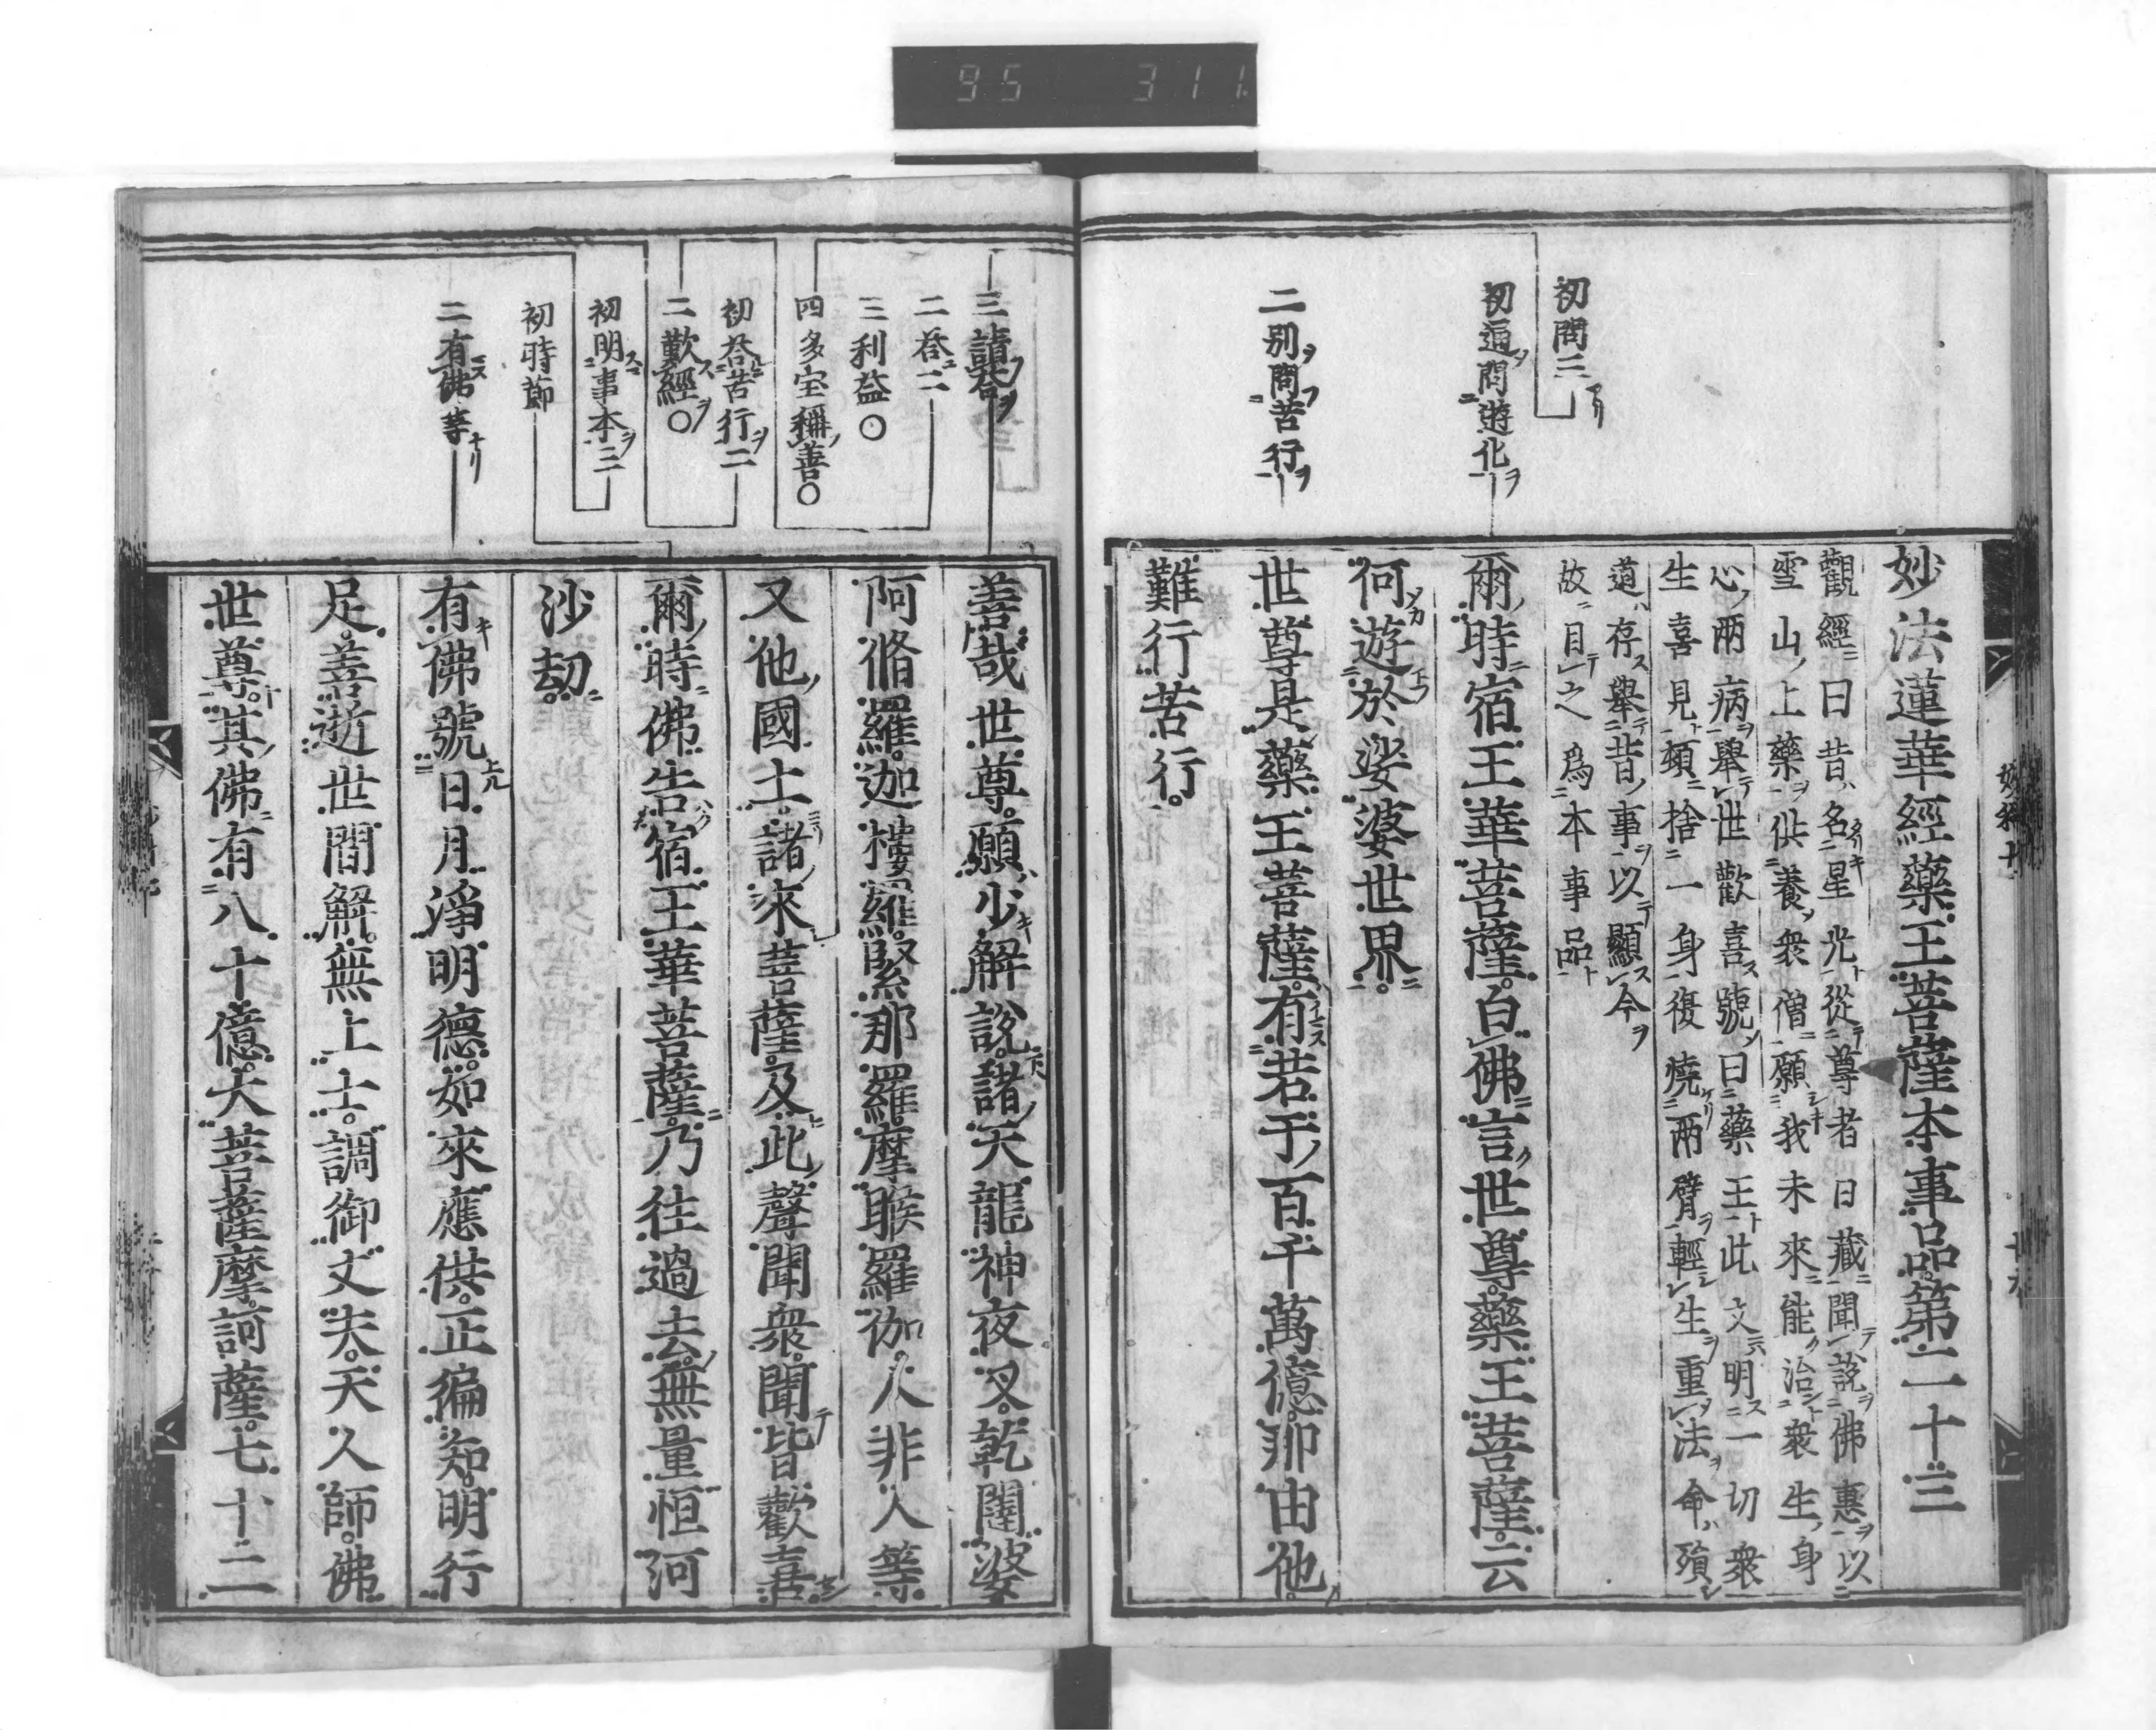 95 311
初問三
初遍問遊化
二別問苦行
妙法蓮華經藥王菩薩本事品第二十三
觀經曰昔名星光從尊者日藏聞說佛惠以
雪山上藥供養衆僧願我未來能治衆生身
心兩病舉世歡喜號曰藥王此文明一切衆
生喜見頻捨一身復燒兩臂輕生重法命殞
道存舉昔事以顯今
故目之爲本事品
爾時宿王華菩薩白佛言世尊藥王菩薩云
何遊於娑婆世界
世尊是藥王菩薩有若干百千萬億那由他
難行苦行
三請答
二答二
三利益〇
四多宝稱善〇
初答苦行二
二歎經〇
初明事本三
初時節
二有佛等
善哉世尊願少解說諸天龍神夜叉乾闥婆
阿脩羅迦樓羅緊那羅摩睺羅伽人非人等
又他國土諸來菩薩及此聲聞衆聞皆歡喜
爾時佛告宿王華菩薩乃往過去無量恒河
沙劫
有佛號日月淨明德如來應供正徧知明行
足善逝世間解無上士調御丈夫天人師佛
世尊其佛有八十億大菩薩摩訶薩七十二